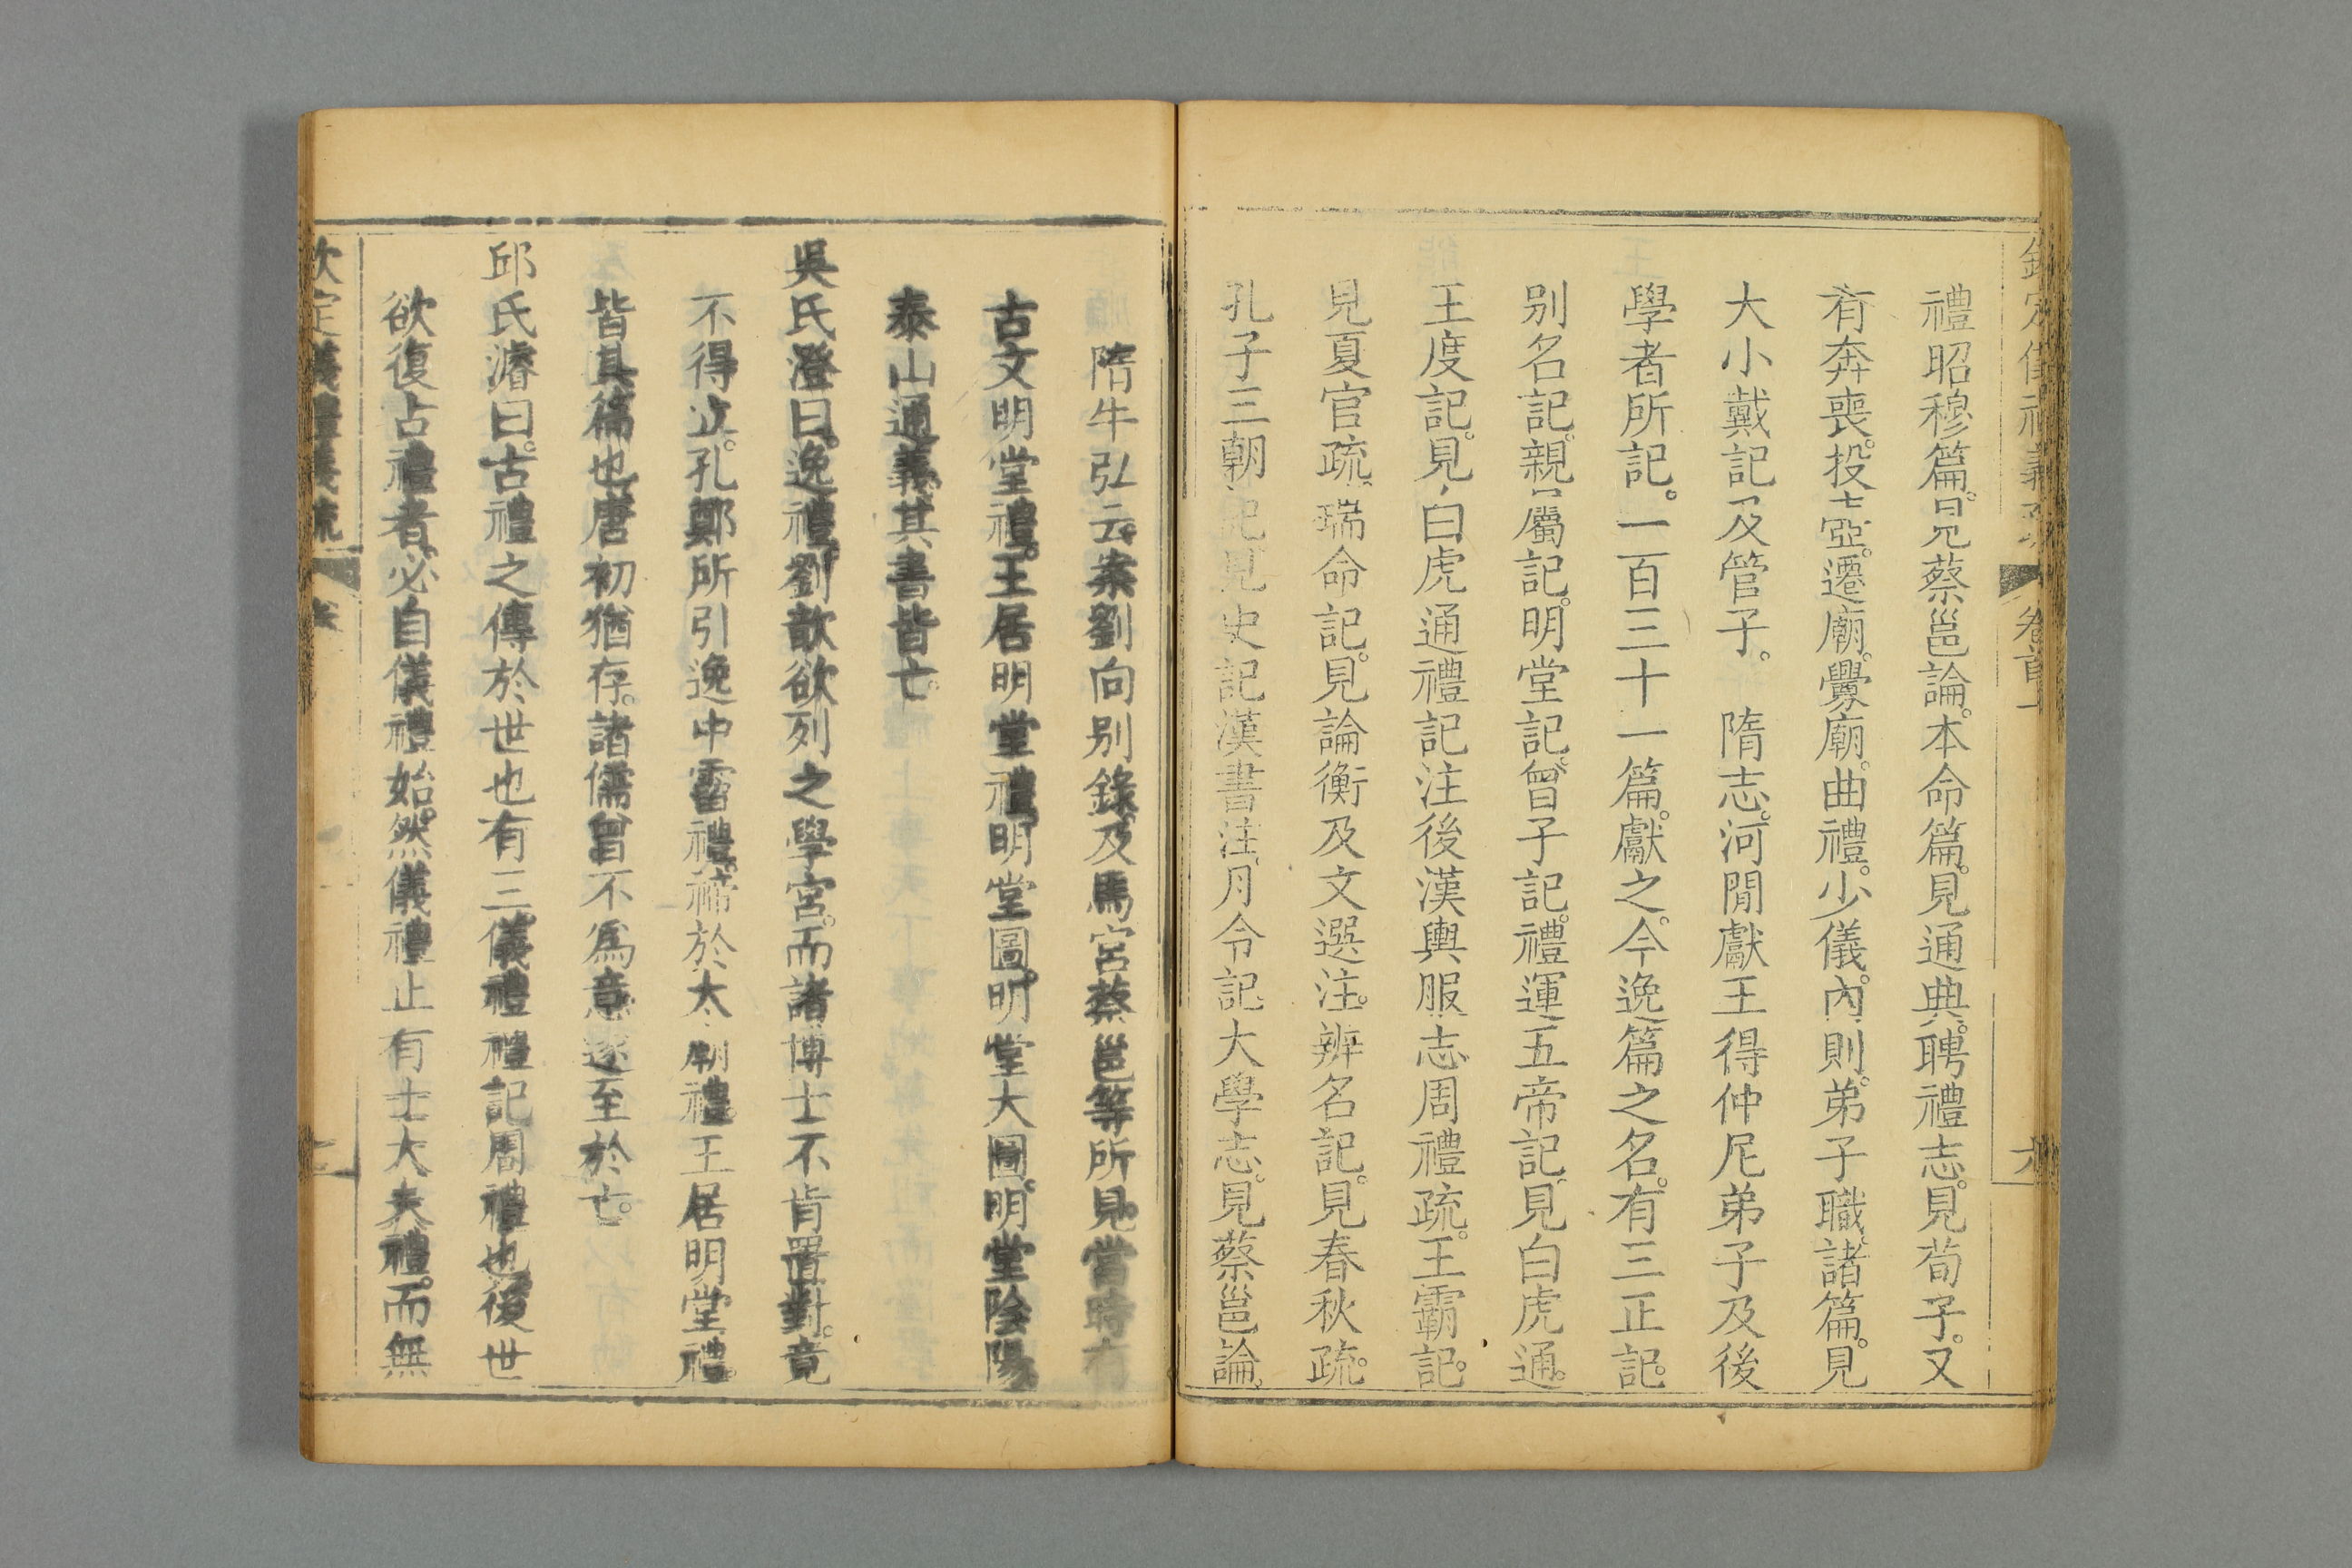 禮昭穆篇。見蔡邕論。本命篇。見通典。聘禮志。見荀子。又
有奔喪。投壺。遷廟。釁廟。曲禮。少儀。內則。弟子職。諸篇。見
大小戴記及管子。隋志。河間獻王得仲尼弟子及後
學者所記。一百三十一篇。獻之。今逸篇之名。有三正記。
別名記。親屬記。明堂記。曾子記。禮運。五帝記。見白虎通。
王度記。見白虎通禮記注後漢輿服志周禮疏。王霸記。
見夏官疏。瑞命記。見論衡及文選注。辨名記。見春秋疏。
孔子三朝記。見史記漢書注。月令記大學志。見蔡邕論。
隋牛弘云。案劉向別錄。及馬宮蔡邕等所見。當時有
古文明堂禮。王居明堂禮。明堂圖。明堂大圖。明堂陰陽。
泰山通義。其書皆亡。
吳氏澄曰。逸禮。劉歆欲列之學宮。而諸博士不肯置對。竟
不得立。孔鄭所引逸中霤禮。禘於太廟禮。王居明堂禮。
皆其篇也。唐初猶存。諸儒曾不爲意。遂至於亡。
邱氏濬曰。古禮之傳於世也有三。儀禮禮記周禮也。後世
欲復古禮者。必自儀禮始。然儀禮止有士大夫禮。而無
欽定儀禮義疏